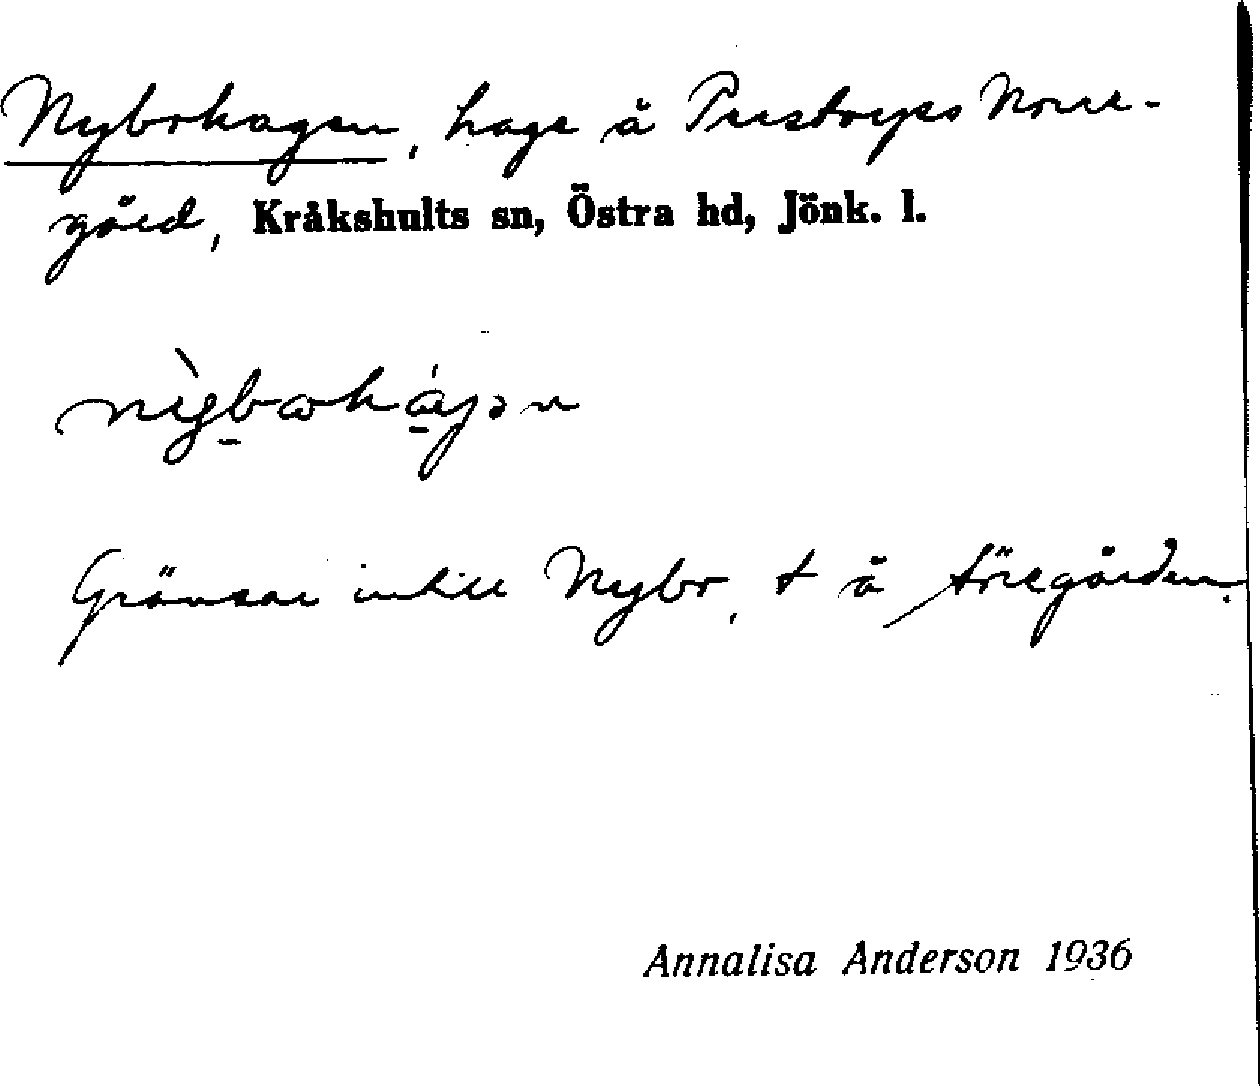 Nybrohagen, hage å Prestorps Norre-
gård, Kråkshults sn, Östra hd, Jönk. l.
Gränsar intill Nybro, t å Föregården.
Annalisa Anderson 1936